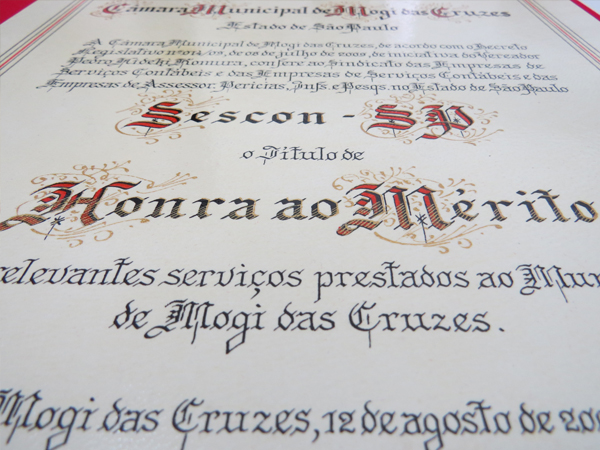 Câmara Municipal de Mogi das Cruzes
Estado de São Paulo
A Câmara Municipal de Mogi das Cruzes, de acordo com o Decreto
Legislativo nº 021/09, de 08 de julho de 2009, de iniciativa do Vereador
Pedro Hideki Komura, confere ao Sindicato das Empresas de
Serviços Contábeis e das Empresas de Serviços Contábeis e das
Empresas de Assessor. Perícias, Infs. e Pesqs. no Estado de São Paulo
Sescon - SP
o Título de
Honra ao Mérito
relevantes serviços prestados ao
de Mogi das Cruzes.
Mogi das Cruzes, 12 de agosto de